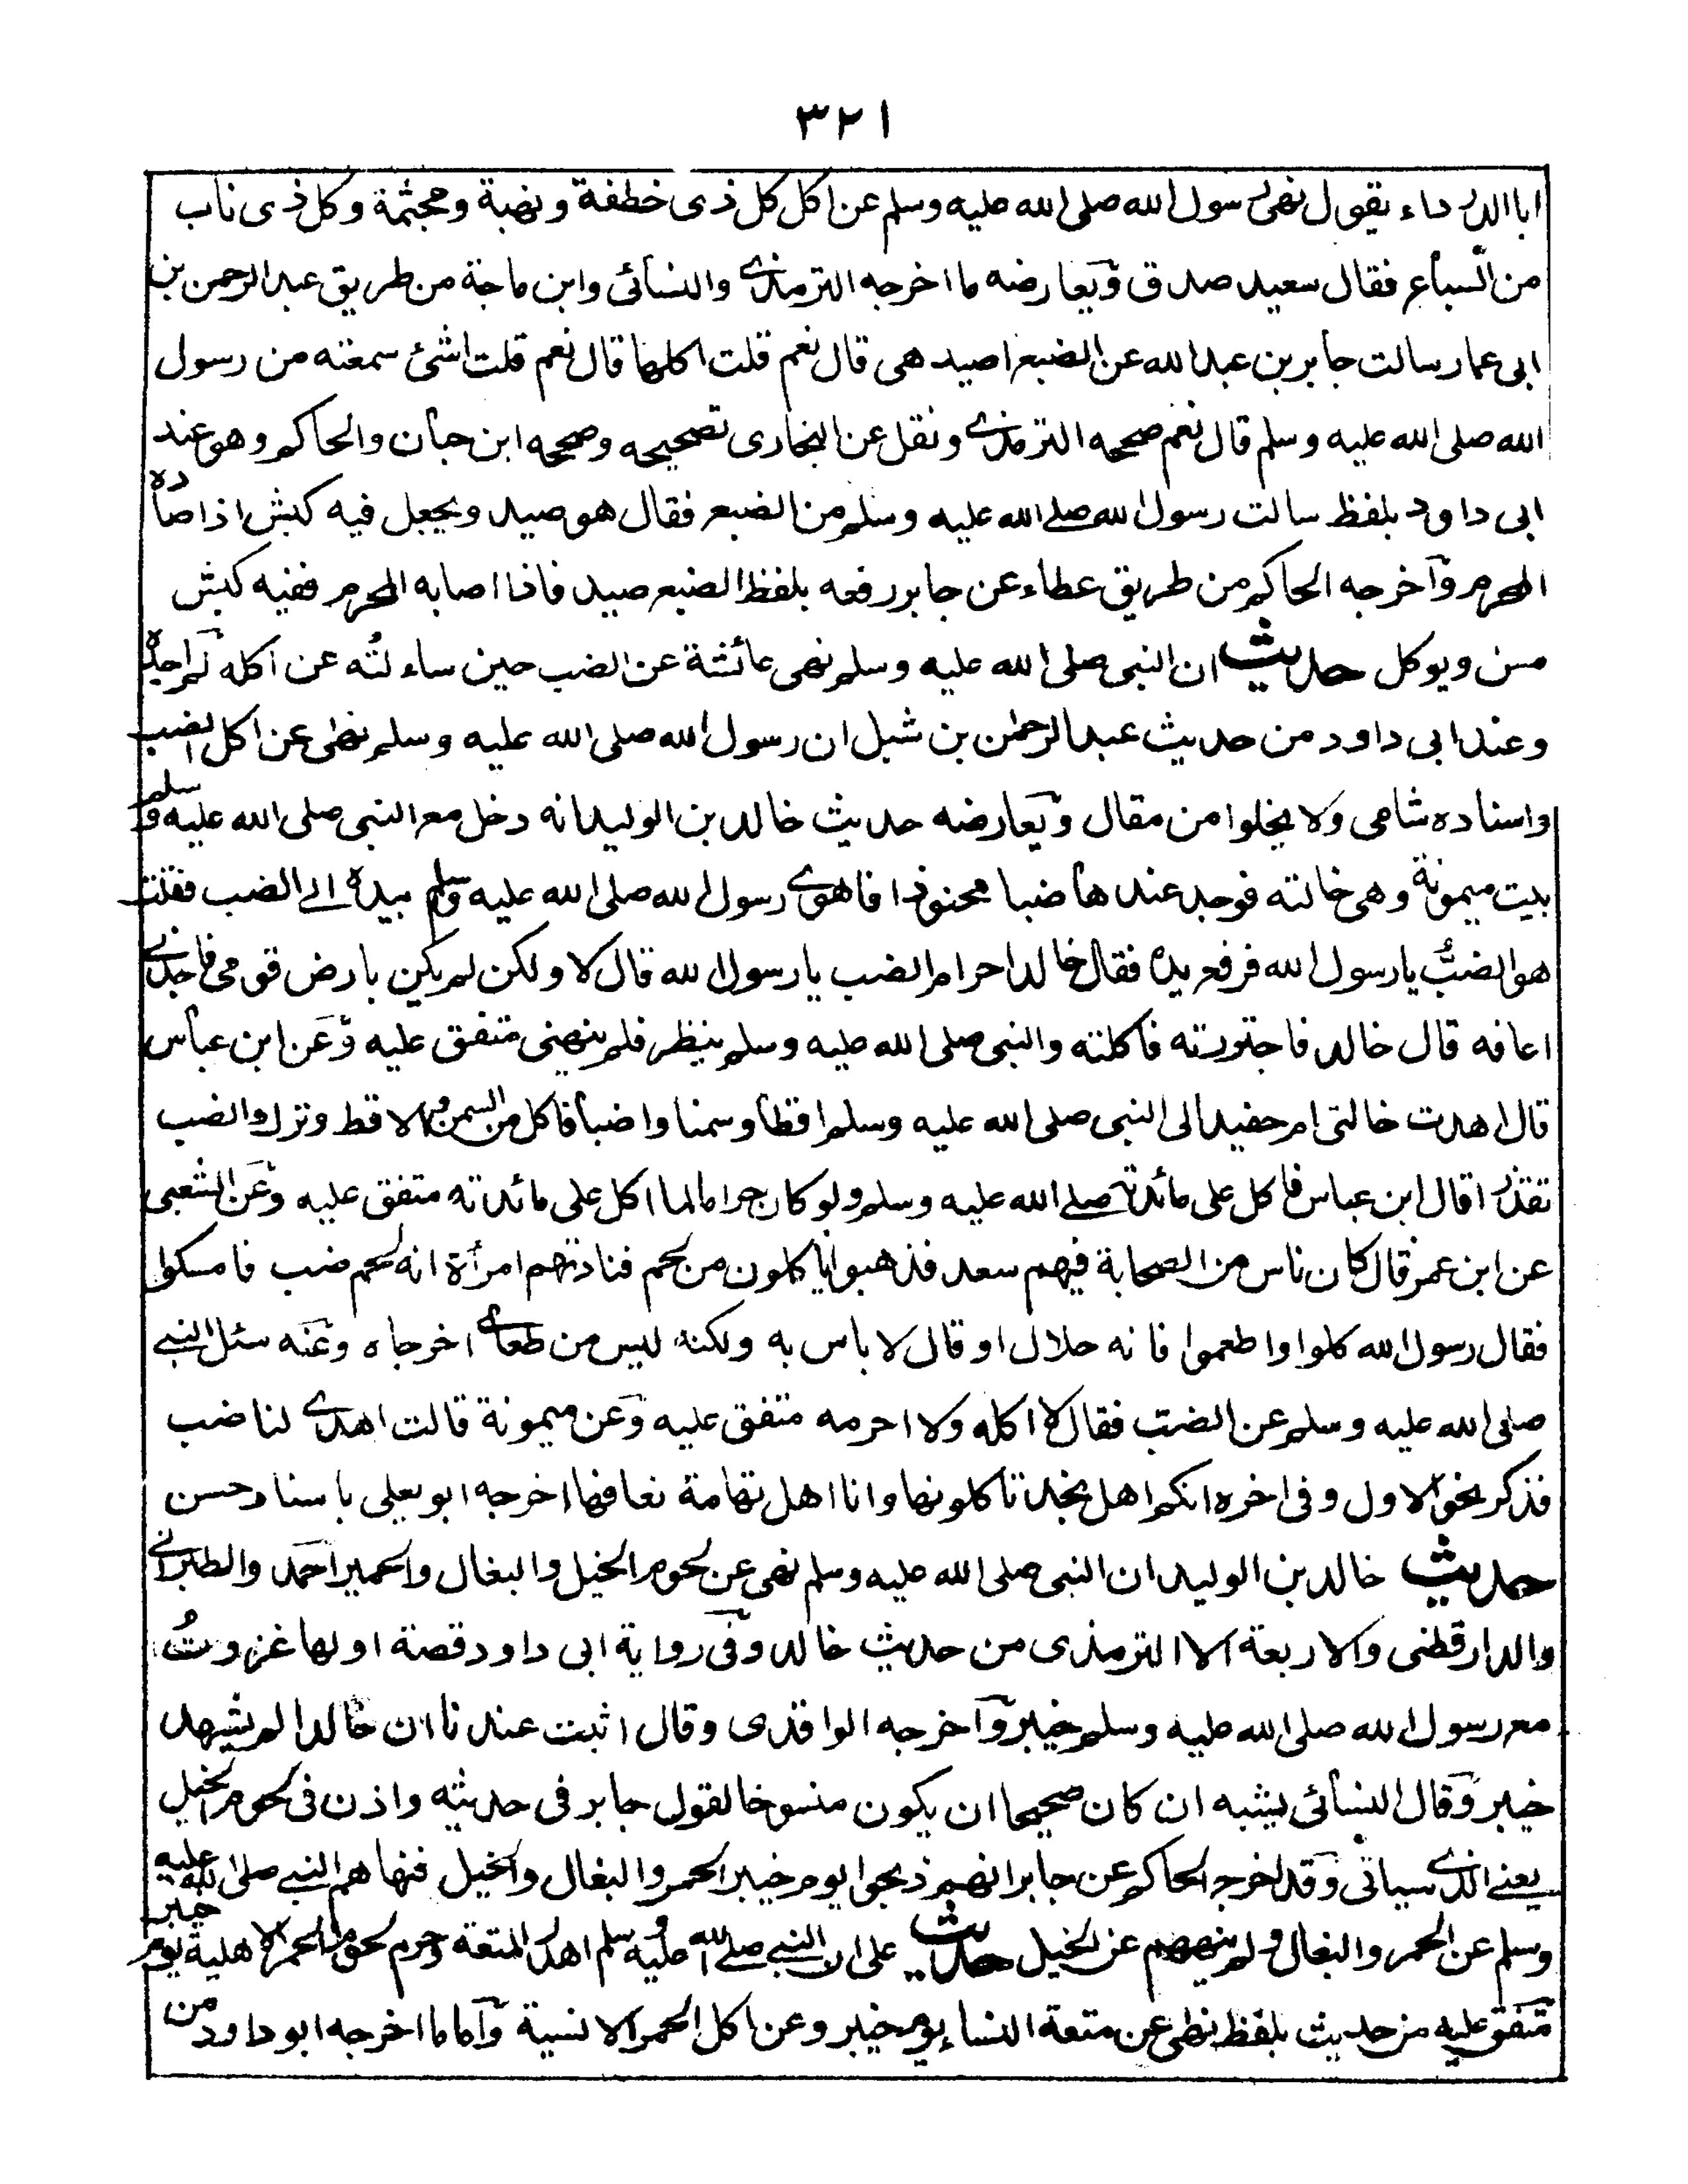 ٣٢١
ابا الدرداء يقول نهى رسول الله صلى الله عليه وسلم عن اكل كل ذى خطفة ونهبة ومجثمة وكل ذى ناب
من السباع فقال سعيد صدق ويعارضه ما اخرجه الترمذى والنسائى وابن ماجة من طريق عبد الرحمن بن
ابى عمار سالت جابر بن عبد الله عن الضبع اصيد هى قال نعم قلت اكلها قال نعم قلت اشئ سمعته من رسول
الله صلى الله عليه وسلم قال نعم صححه الترمذى ونقل عن البخارى تصحيحه وصححه ابن حبان والحاكم وهو عند
ابى داود بلفظ سالت رسول الله صلى الله عليه وسلم من الضبع فقال هو صيد ويجعل فيه كبش اذا صاده
المحرم وآخرجه الحاكم من طريق عطاء عن جابر رفعه بلفظ الضبع صيد فاذا اصابه المحرم ففيه كبش
مسن ويوكل حديث ان النبى صلى الله عليه وسلم نهى عائشة عن الضب حين ساءلتُه عن اكله لم اجده
وعند ابى داود من حديث عبد الرحمن بن شبل ان رسول الله صلى الله عليه وسلم نهى عن اكل الضب
واسناده شامى ولا يخلوا من مقال ويعارضه حديث خالد بن الوليد انه دخل مع النبى صلى الله عليه وسلم
بيت ميمونة وهى خالته فوجد عندها ضبا محنوذا فاهوى رسول الله صلى الله عليه وسلم بيده الى الضب فقلت
هو الضبُّ يا رسول الله فرفع يده فقال خالد احرام الضب يا رسول الله قال لا ولكن لم يكن بارض قومى فاجدنى
اعافه قال خالد فاجتررته فاكلته والنبى صلى الله عليه وسلم ينظر فلم ينهنى متفق عليه وعن ابن عباس
قال اهدت خالتى ام حفيد الى النبى صلى الله عليه وسلم اقطا وسمنا واضبا فاكل من السمن والاقط وترك الضب
تقذرا قال ابن عباس فاكل على مائدته صلى الله عليه وسلم ولو كان حراما لما اكل على مائدته متفق عليه وعن الشعبى
عن ابن عمر قال كان ناس من الصحابة فيهم سعد فذهبوا ياكلون من لحم فنادتهم امرأة انه لحم ضب فامسكوا
فقال رسول الله كلوا واطعموا فانه حلال او قال لا باس به ولكنه ليس من طعامى اخرجاه وعنه سئل النبى
صلى الله عليه وسلم عن الضب فقال لا اكله ولا احرمه متفق عليه وعن ميمونة قالت اهدى لنا ضب
فذكر نحو الاول وفى اخره انكم اهل نجد تاكلونها وانا اهل تهامة نعافها اخرجه ابو يعلى باسناد حسن
حديث خالد بن الوليد ان النبى صلى الله عليه وسلم نهى عن لحوم الخيل والبغال والحمير احمد والطبرانى
والدارقطنى والاربعة الا الترمذى من حديث خالد وفى رواية ابى داود قصة اولها غزوتُ
مع رسول الله صلى الله عليه وسلم خيبر وآخرجه الواقدى وقال اثبت عندنا ان خالدا لم يشهد
خيبر وقال النسائى يشبه ان كان صحيحا ان يكون منسوخا لقول جابر فى حديثه واذن فى لحوم الخيل
يعنى الذى سياتى وقد اخرجه الحاكم عن جابر انهم ذبحوا يوم خيبر الحمر والبغال والخيل فنهاهم النبى صلى الله عليه
وسلم عن الحمر والبغال ولم ينههم عن الخيل حديث على ان النبى صلى الله عليه وسلم اهدر المتعة وحرم لحوم الحمر الاهلية يوم خيبر
متفق عليه من حديث بلفظ نهى عن متعة النساء يوم خيبر وعن اكل الحمر الانسية وآما ما اخرجه ابو داود من